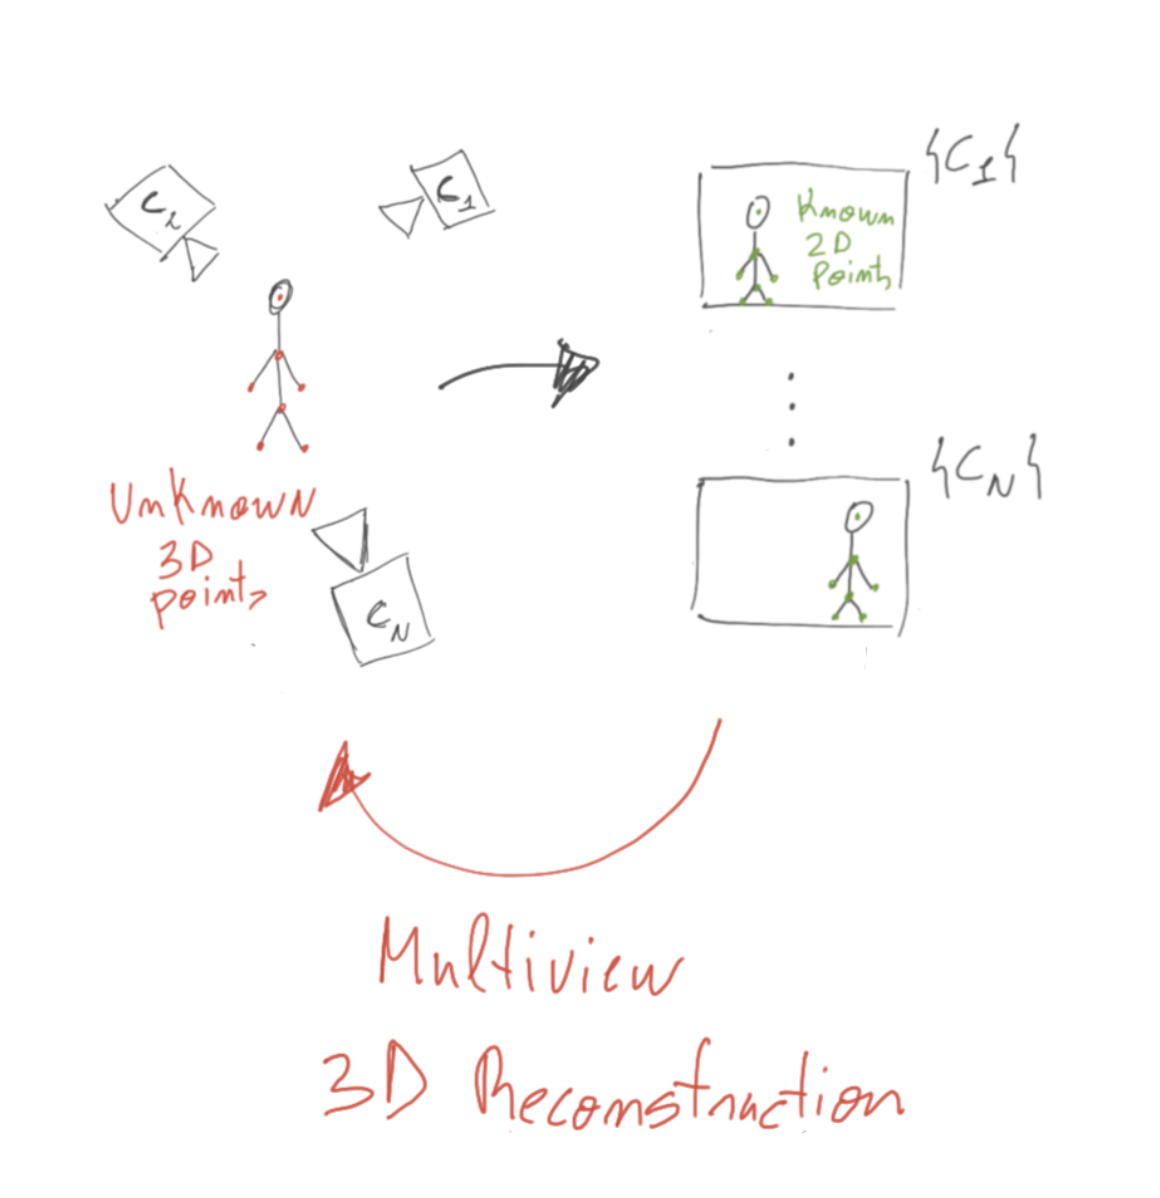 C2
C1
{C1}
Known
2D
Points
Unknown
3D
points
CN
{CN}
Multiview
3D Reconstruction